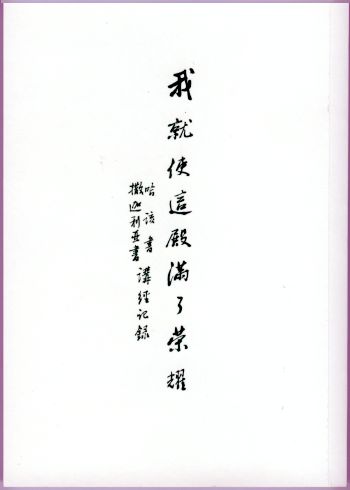 我就使這殿滿了榮耀
哈該書
撒迦利亞書
講經記錄